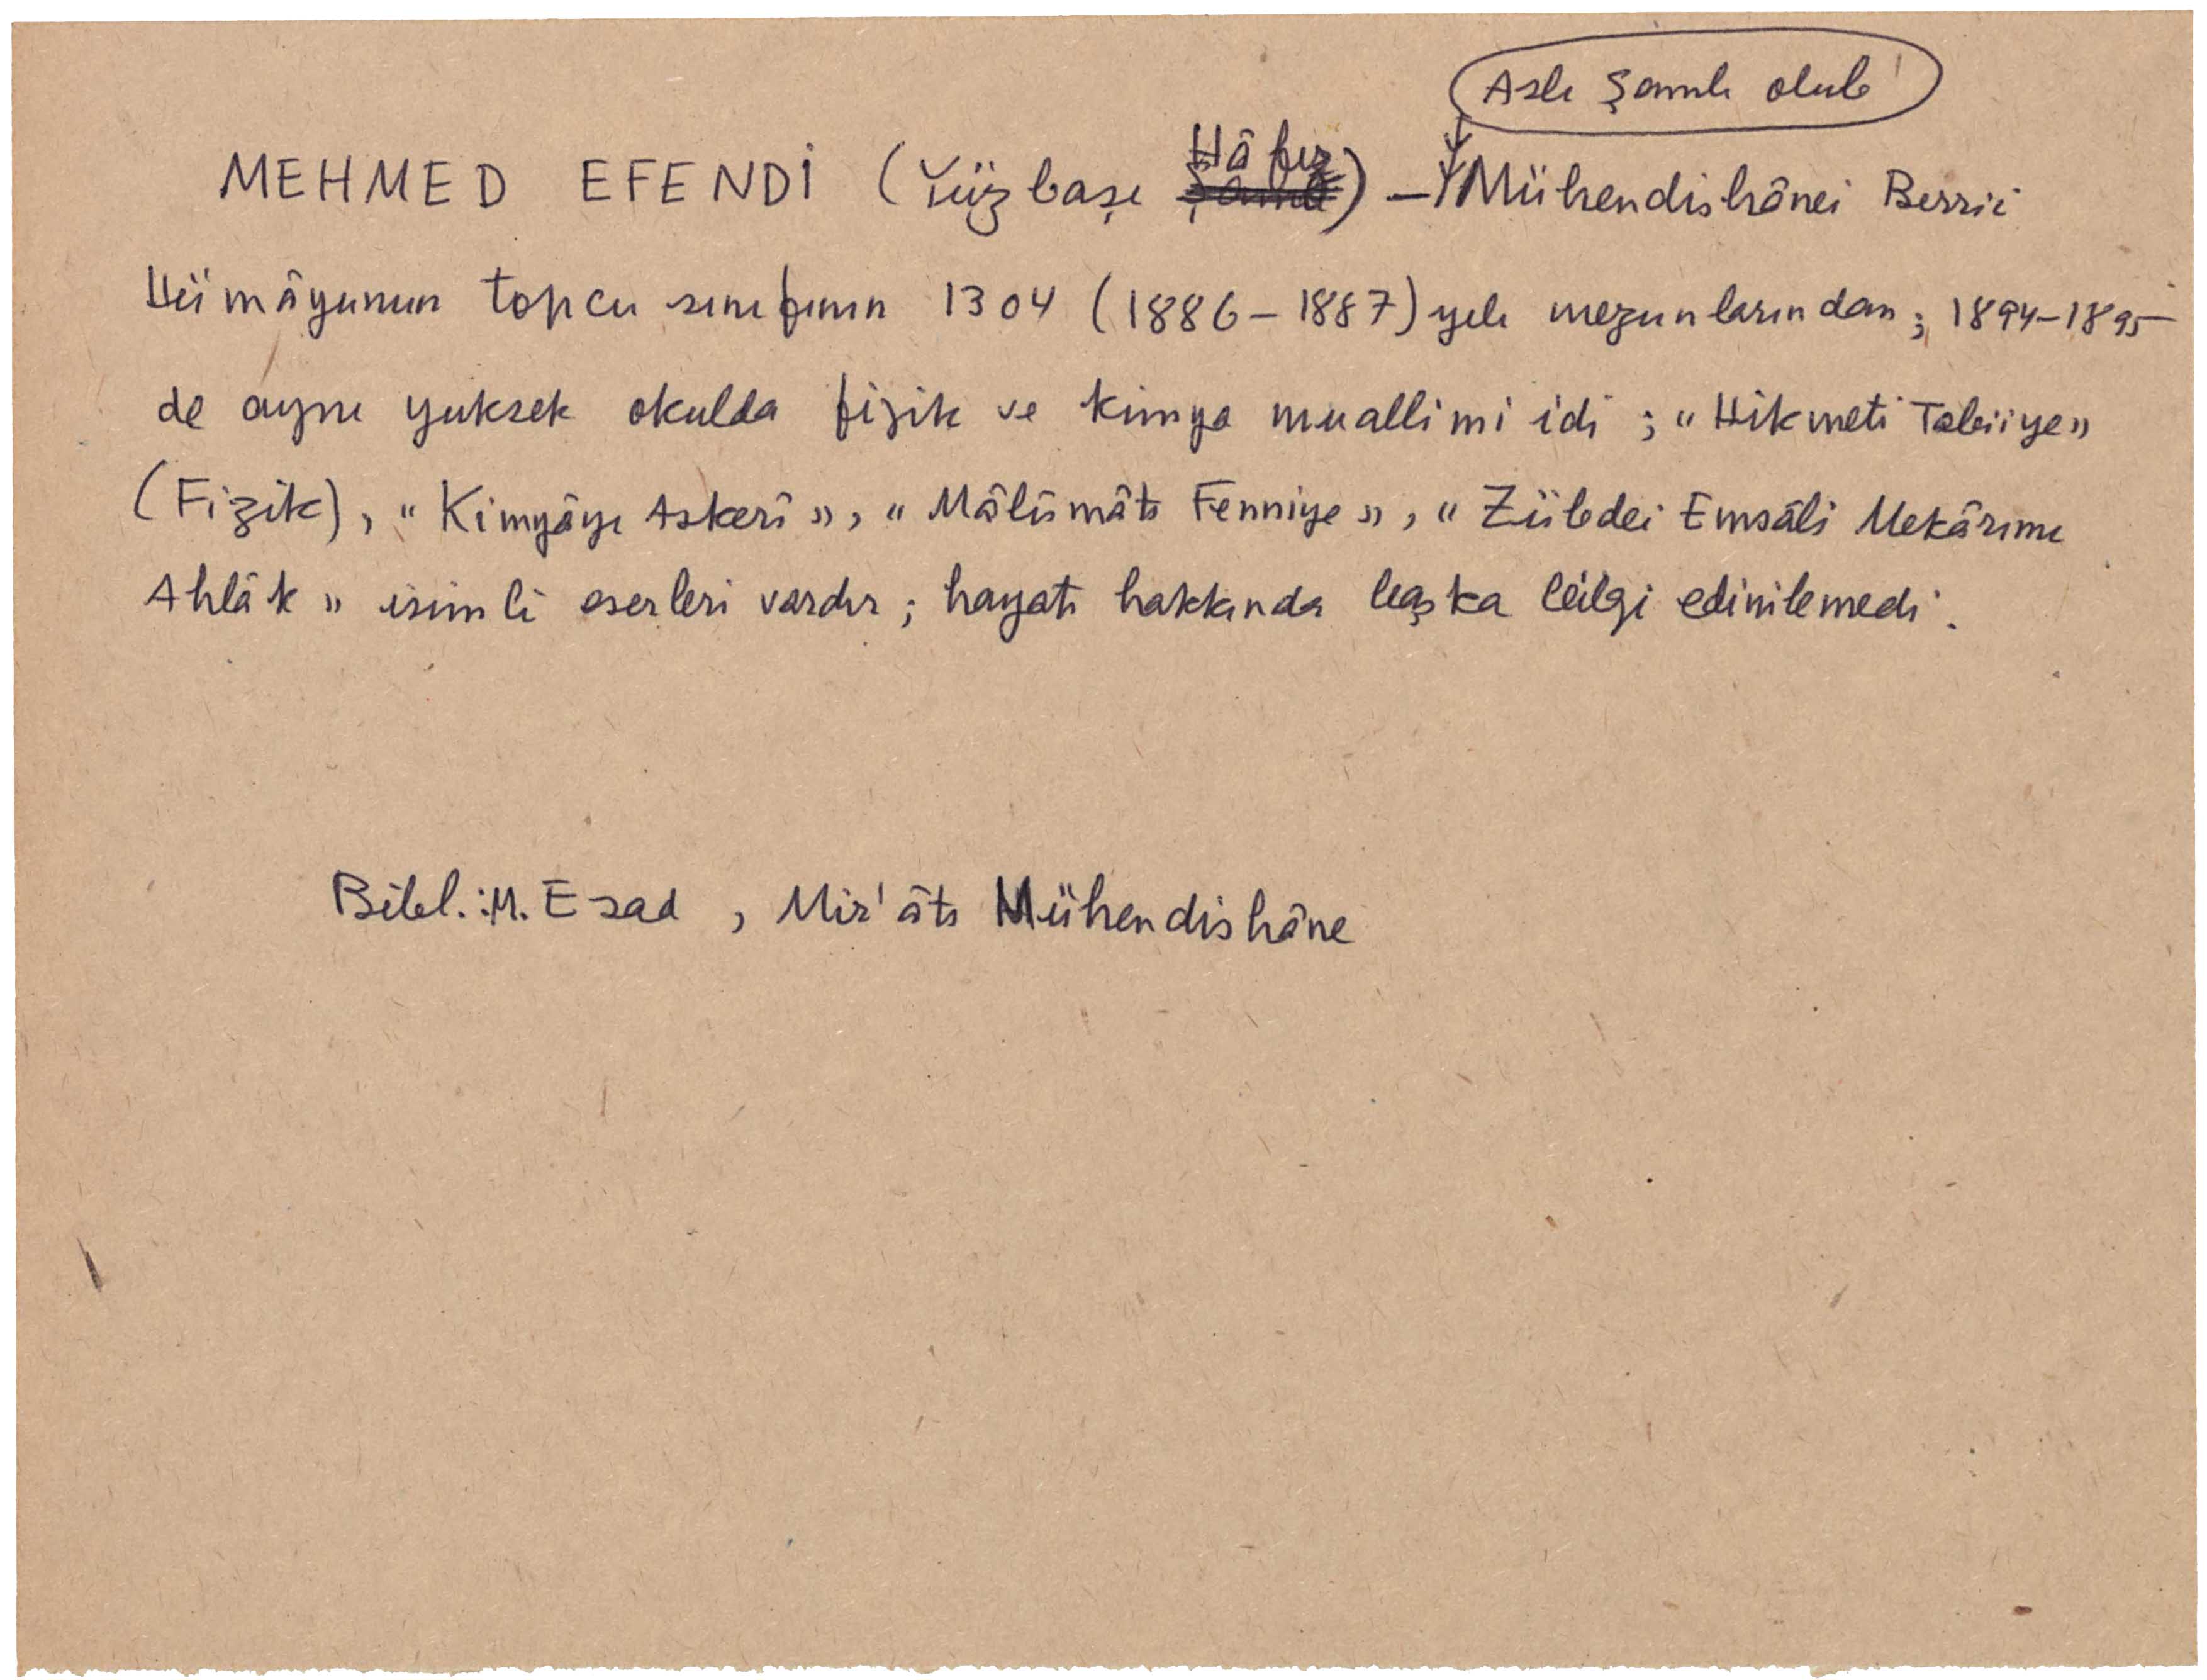 Aslı Şamlı olub
MEHMED EFENDİ (Yüzbaşı Hâfız) — Mühendishânei Berrii
Hümâyunun topcu sınıfının 1304 (1886–1887) yılı mezunlarından; 1894–1895
de aynı yuksek okulda fizik ve kimya muallimi idi; "Hikmeti Tabiiye"
(Fizik), "Kimyâyı Askerî", "Mâlûmâtı Fenniye", "Zübdei Emsâli Mekârimı
Ahlâk" isimli eserleri vardır; hayatı hakkında başka bilgi edinilemedi.
Bibl.: M. Esad, Mir'âtı Mühendishâne